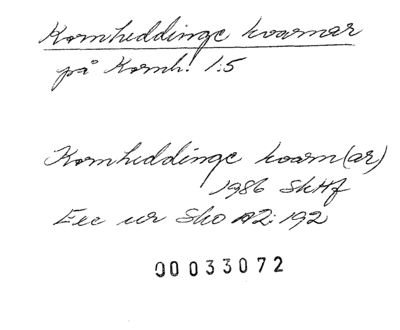 Kornheddinge kvarnar
på Kornh. 1:5
Kornheddinge kvarn(ar)
1986 SkHf
Exc ur Sko A2:192
00033072